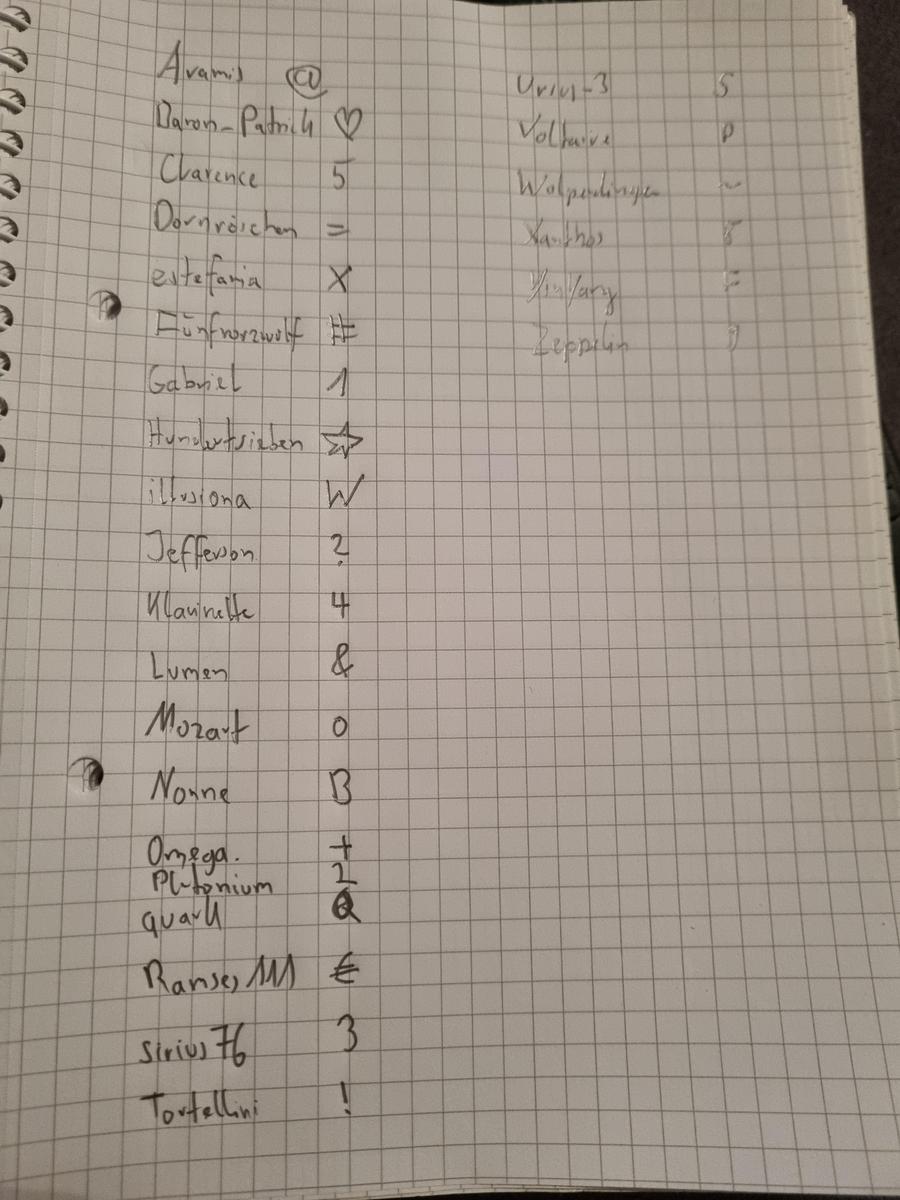 Aramis @
Baron-Patrick ♡
Clarence 5
Dornröschen =
estefania X
Fünfvorzwölf #
Gabriel 1
Hundertsieben ☆
illusiona W
Jefferson ?
Klarinette 4
Lumen &
Mozart 0
Nonne B
Omega. +
Plutonium 2
quark Q
Ramses 111 €
sirius 76 3
Tortellini !
Urius-3 5
Voltaire P
Wolperdinger ~
Xanthos
YinYang F
Zeppelin 9